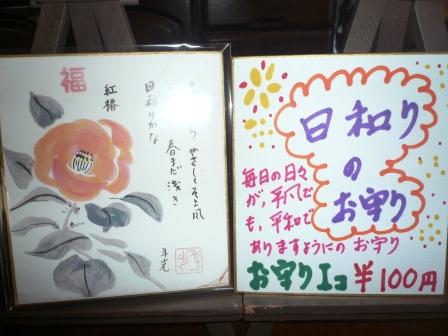 福
紅椿
やさしくそよ風
春まだ浅き
日和りかな
日和り
の
お守り
毎日の日々
が、平凡で
も、平和で
ありますようにの お守り
お守りエコ ¥100円